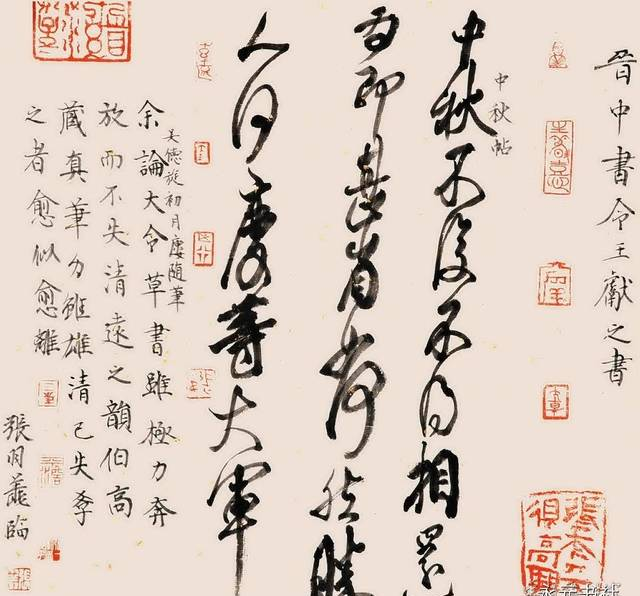 晉中書令王獻之書
中秋帖
中秋不復不得相還
為即甚省如何然勝
人何慶等大軍
吳德旋初月樓隨筆
余論大令草書雖極力奔
放而不失清遠之韻伯高
藏真筆力雖雄清已失學
之者愈似愈離
張羽臨